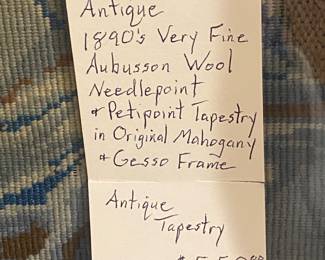 Antique
1890's Very Fine
Aubusson Wool
Needlepoint
+ Petipoint Tapestry
in Original Mahogany
+ Gesso Frame
Antique
Tapestry